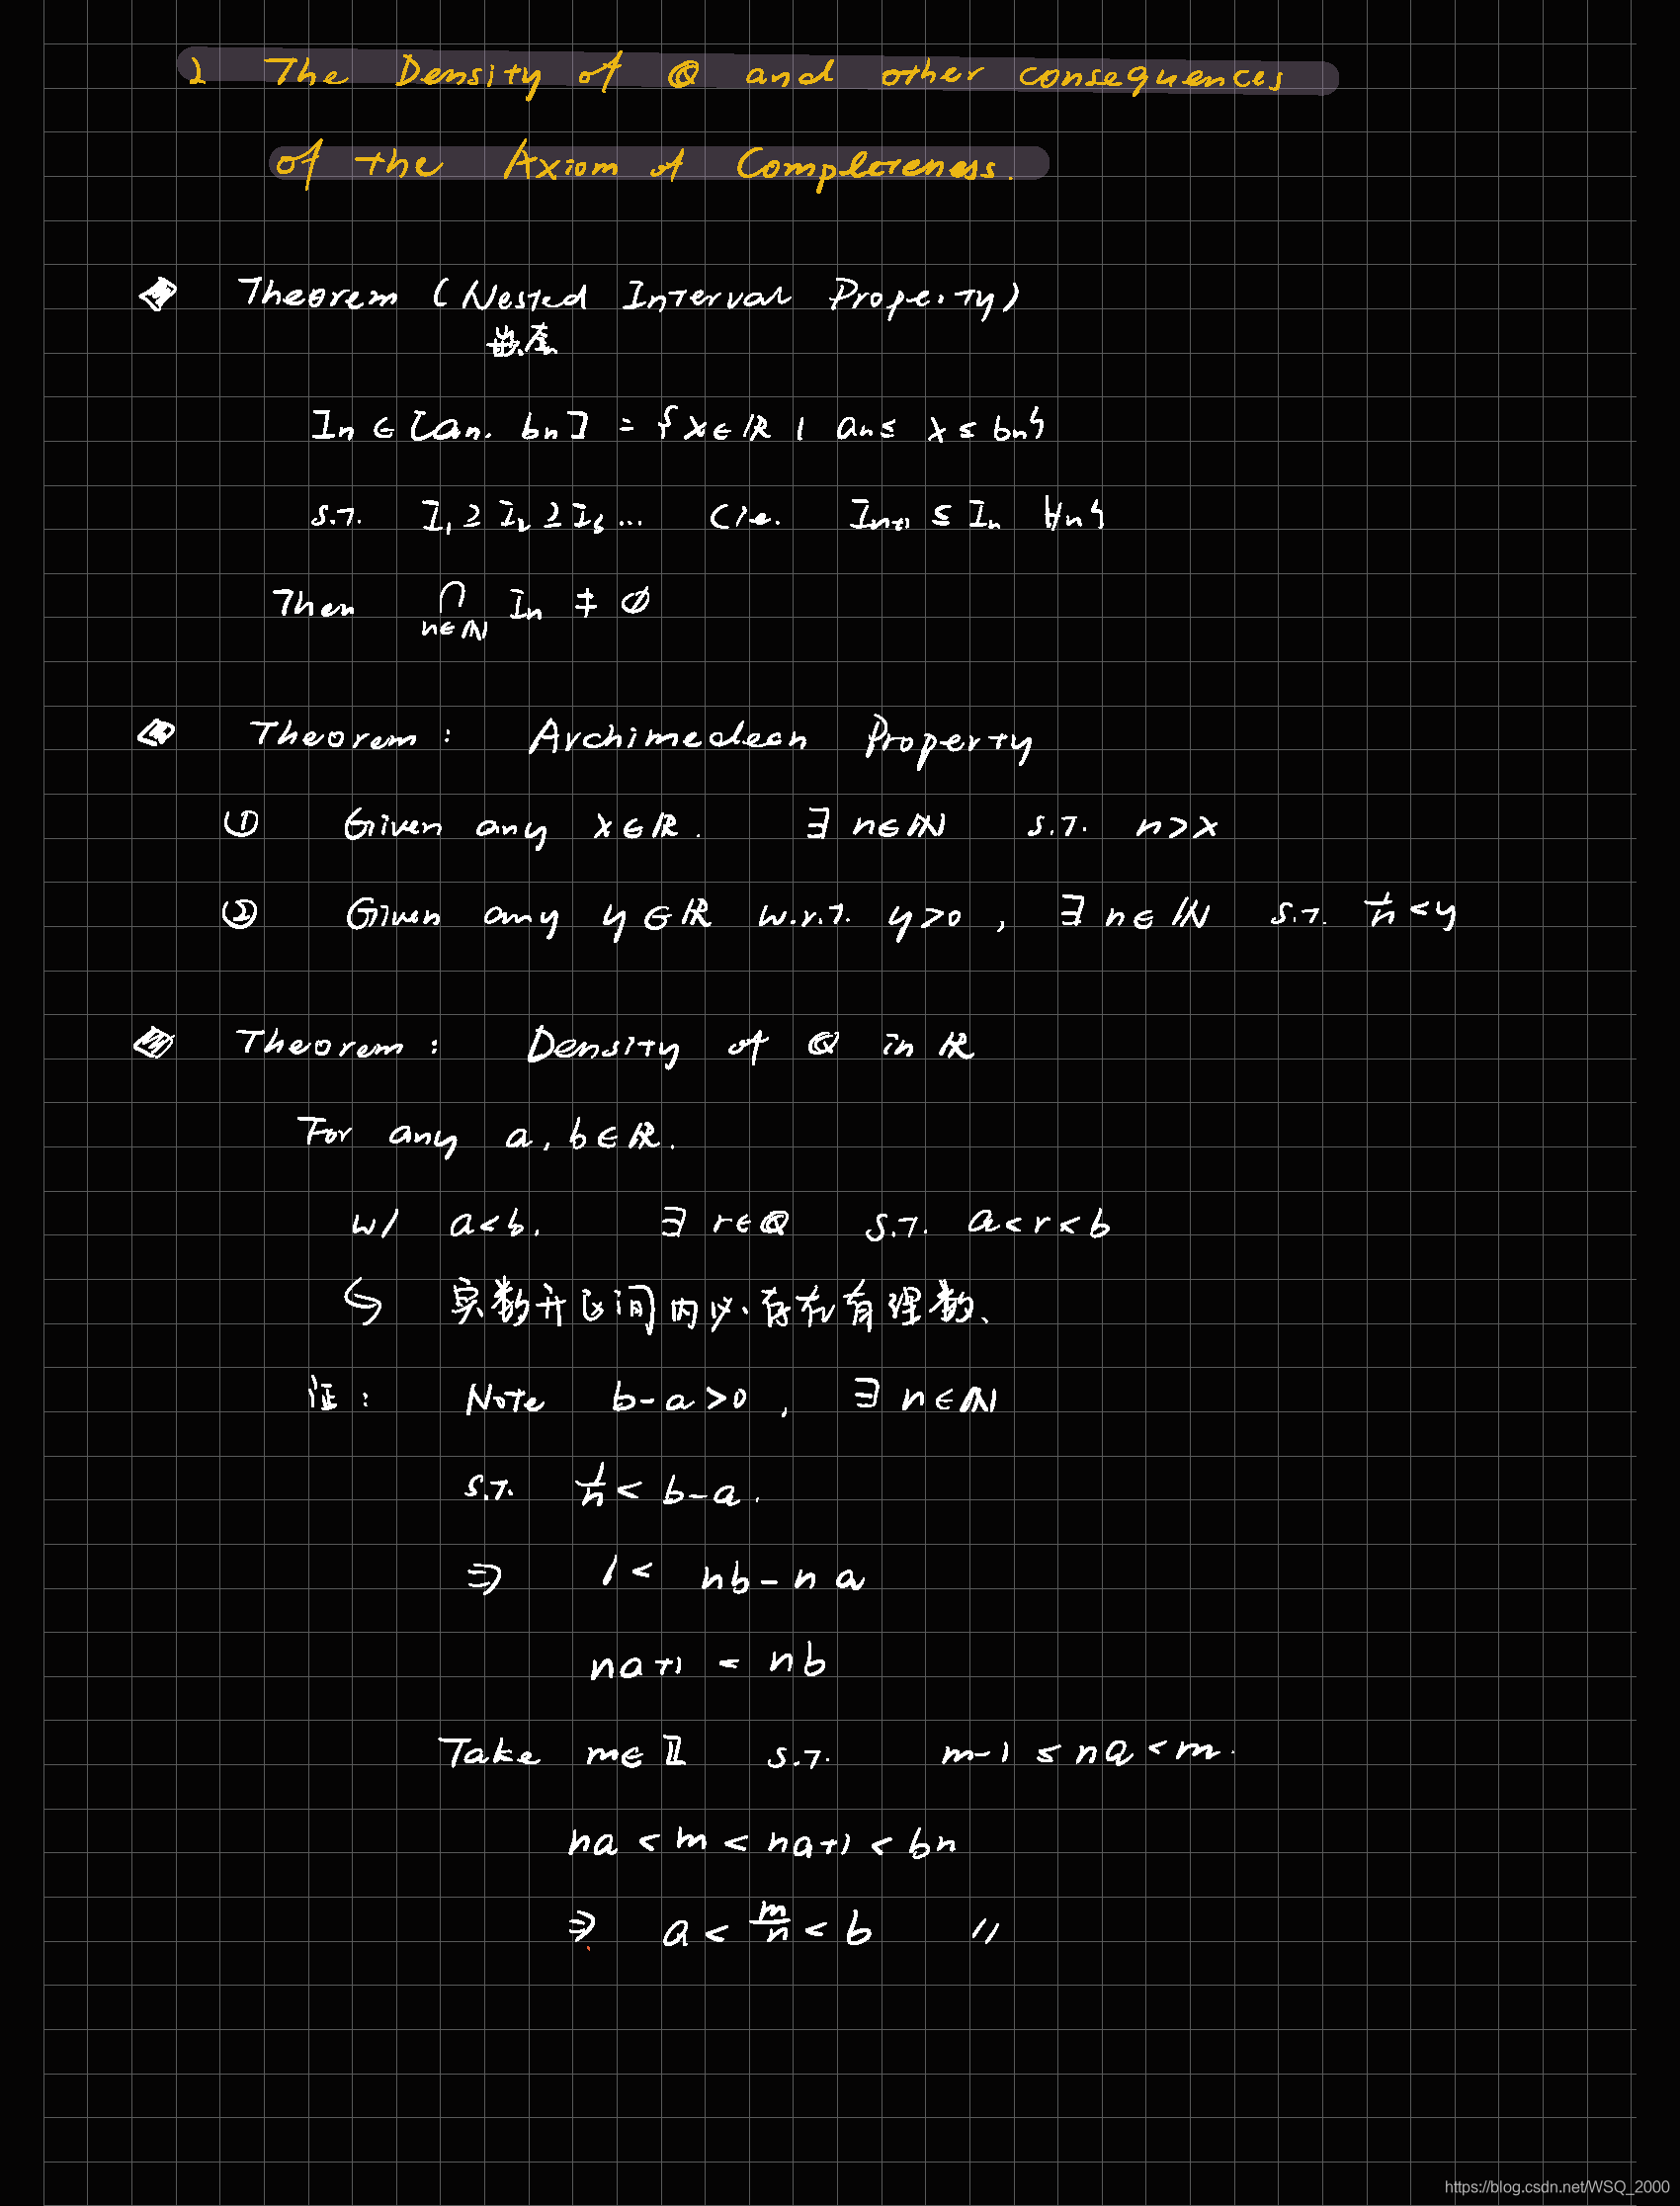 2 The Density of ℚ and other consequences
of the Axiom of Completeness.
Theorem (Nested Interval Property)
嵌套
In ∈ [an, bn] = {x∈ℝ | an ≤ x ≤ bn}
s.t. I₁ ⊇ I₂ ⊇ I₃ ... (i.e. In+1 ⊆ In ∀n}
Then ⋂ In ≠ ∅
n∈ℕ
Theorem: Archimedean Property
① Given any x∈ℝ. ∃ n∈ℕ s.t. n>x
② Given any y∈ℝ w.r.t. y>0, ∃ n∈ℕ s.t. 1/n < y
Theorem: Density of ℚ in ℝ
For any a, b∈ℝ.
w/ a<b. ∃ r∈ℚ s.t. a<r<b
↳ 实数开区间内必存在有理数、
证: Note b-a>0, ∃ n∈ℕ
s.t. 1/n < b-a.
⇒ 1 < nb-na
na+1 < nb
Take m∈ℤ s.t. m-1 ≤ na < m.
na < m < na+1 < bn
⇒ a < m/n < b //
https://blog.csdn.net/WSQ_2000